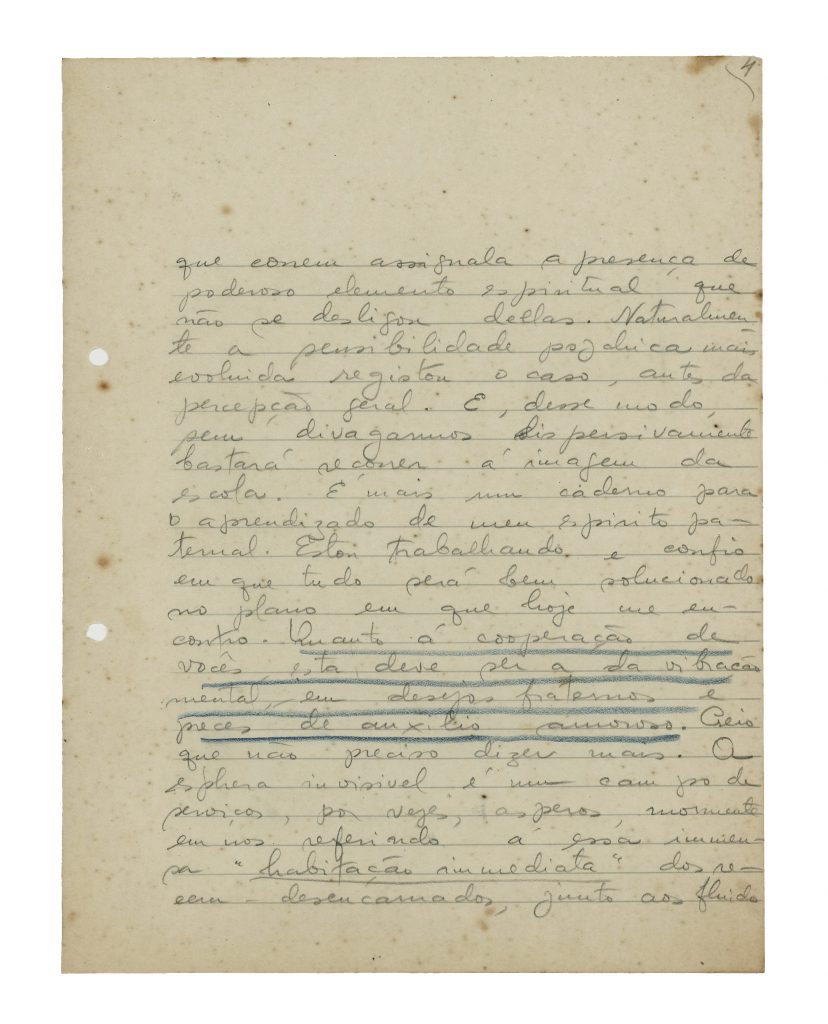 4
que correm assignala a presença de
poderoso elemento espiritual que
não se desligou dellas. Naturalmen-
te a sensibilidade psychica mais
evoluida registou o caso, antes da
percepção geral. E, desse modo,
sem divagarmos dispersivamente
bastará recorrer á imagem da
escola. É mais um caderno para
o aprendizado de meu espirito pa-
ternal. Estou trabalhando e confio
em que tudo será bem solucionado
no plano em que hoje me en-
contro. Quanto á cooperação de
vocês, esta deve ser a da vibração
mental, em desejos fraternos e
preces de auxilio amoroso. Creio
que não preciso dizer mais. A
esphera invisivel é um campo de
serviços, por vezes, asperos, mormente
em nos referindo á essa immen-
sa "habitação immediata" dos re-
cem-desencarnados, junto aos fluidos